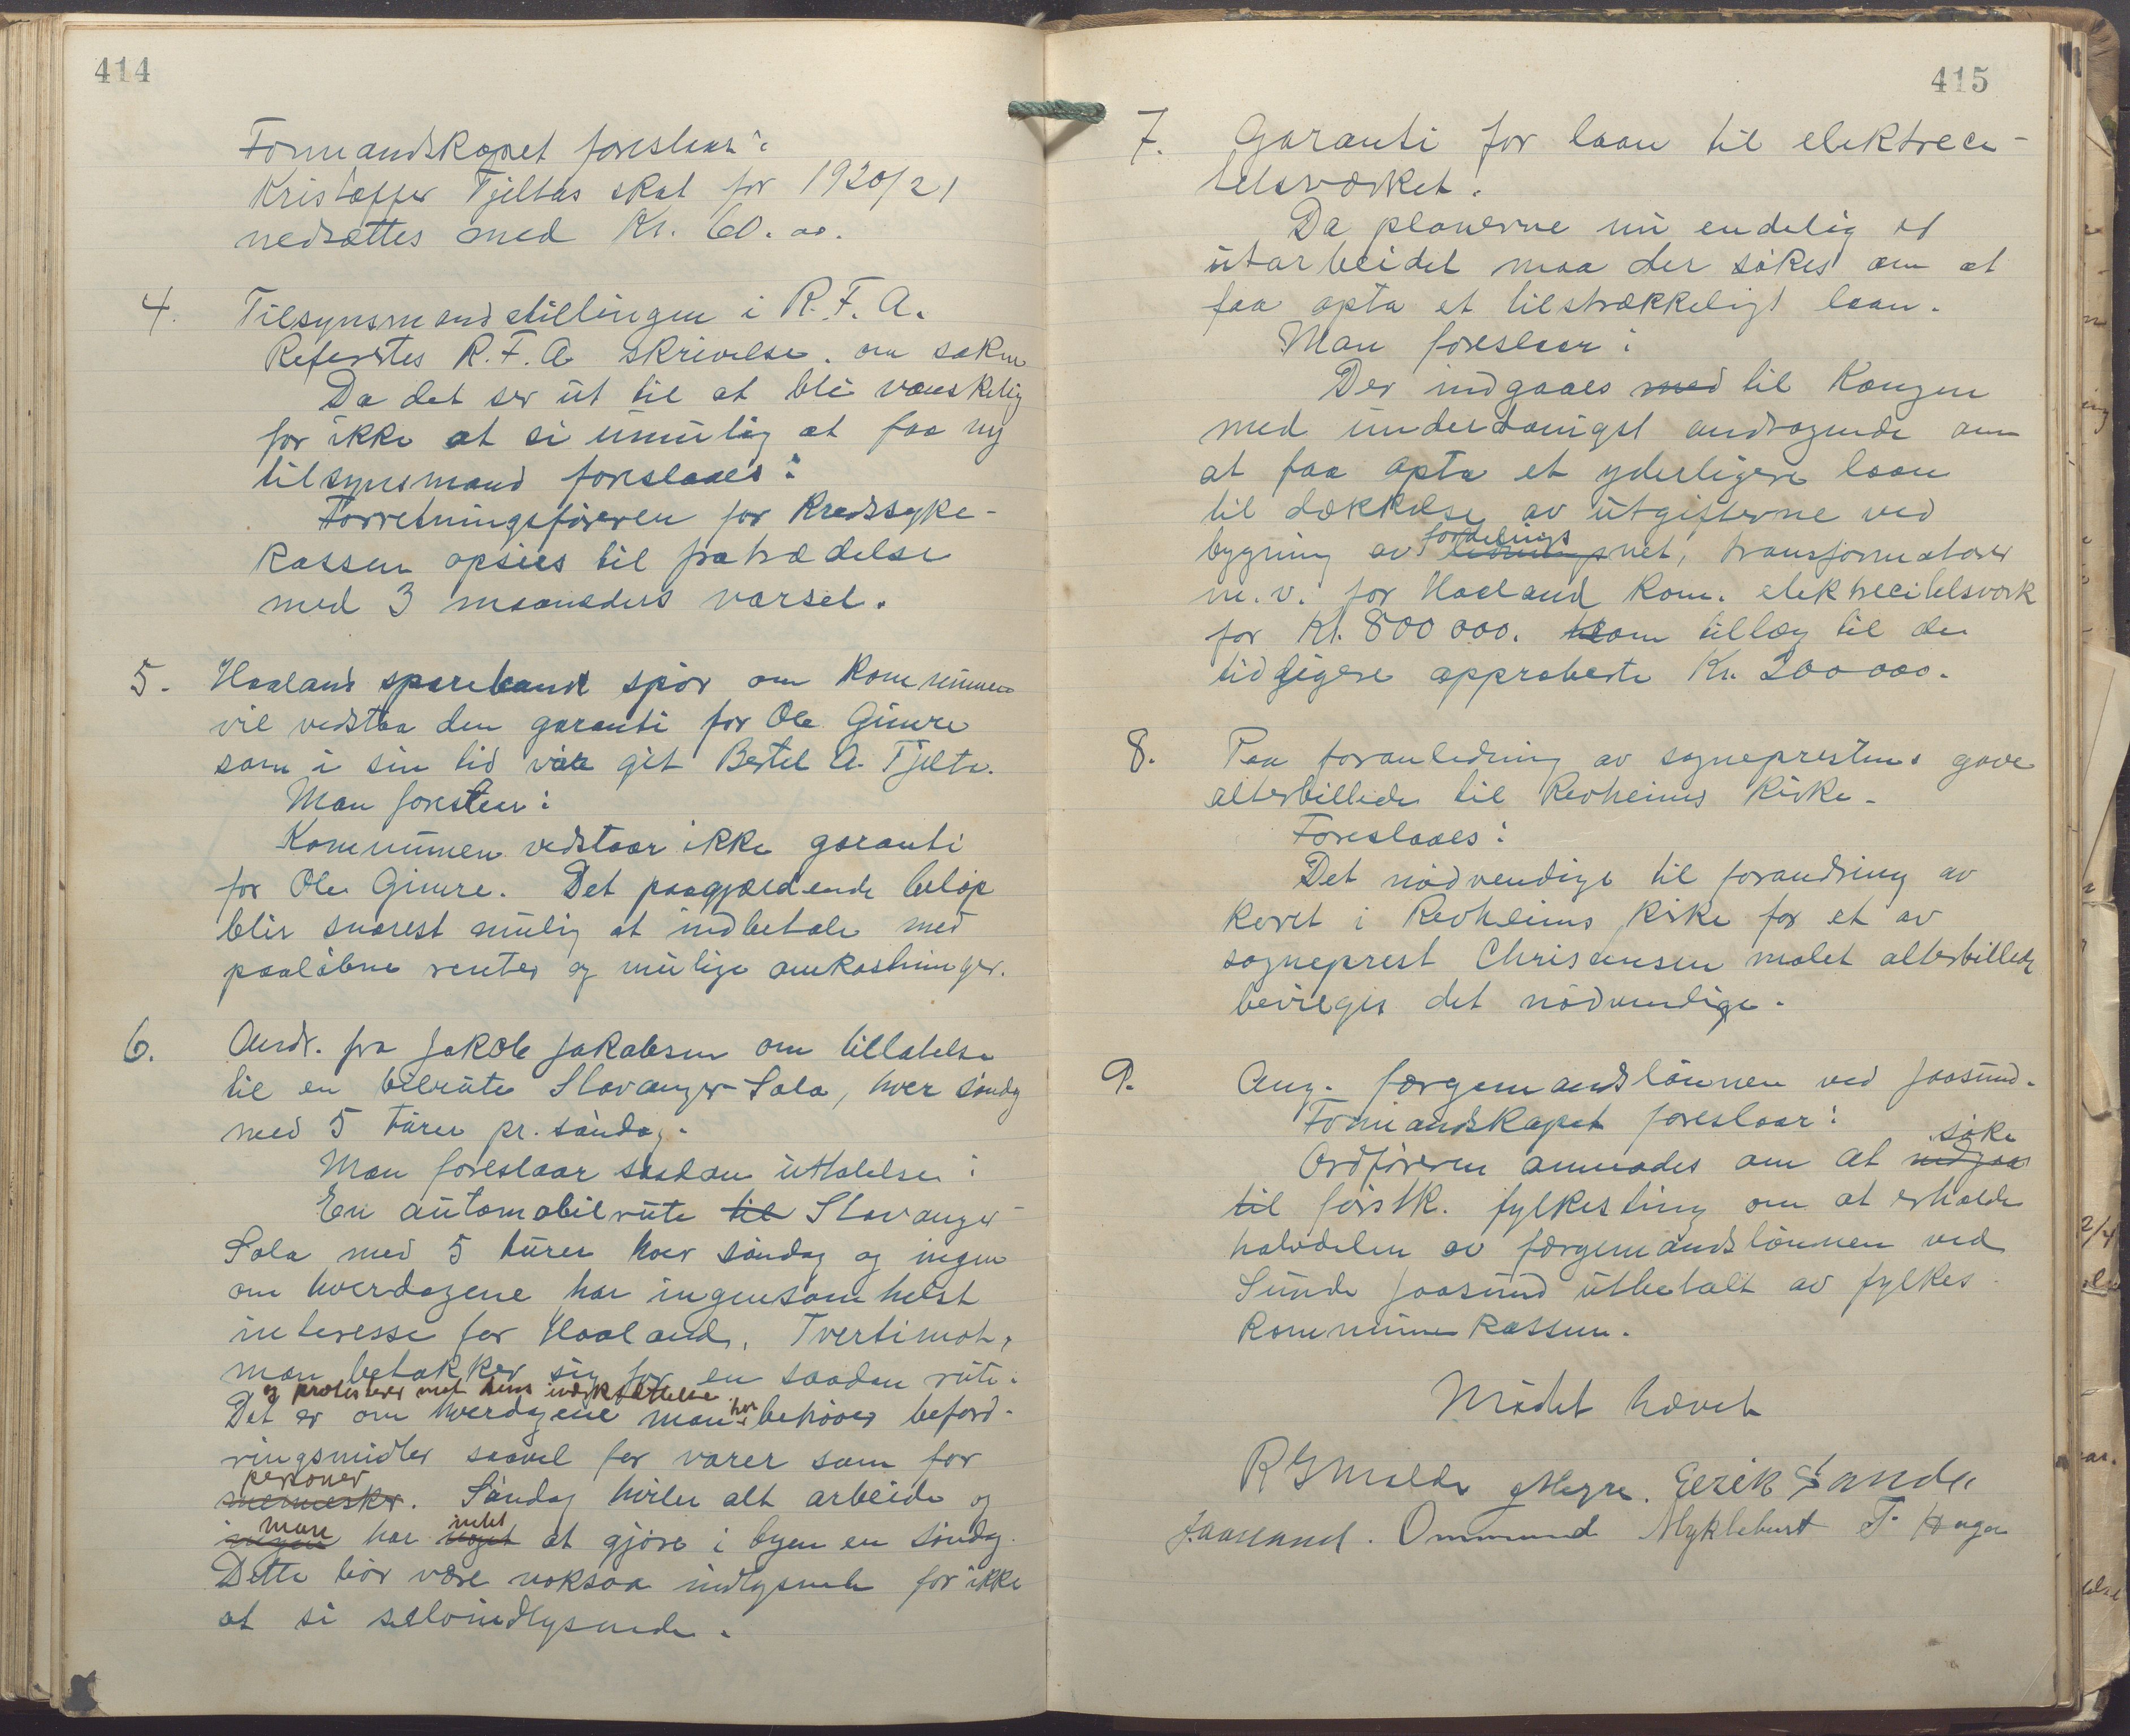 414
Formandskapet foreslaar:
Kristoffer Tjeltas skat for 1920/21
nedsættes med Kr. 60.00.
4. Tilsynsmandstillingen i R.F.A.
Refertes R.F.A skrivelse. om saken
Da det ser ut til at bli vanskelig
for ikke at si umulig at faa ny
tilsynsmand foreslaaes:
Forretningsføreren for Kredssyke-
kassen opsies til fratrædelse
med 3 maaneders varsel.
5. Haaland sparebank spør om kommunen
vil vedstaa den garanti for Ole Gimre
som i sin tid var git Bertel A. Tjelta.
Man foreslaar:
Kommunen vedstaar ikke garanti
for Ole Gimre. Det paagjældende beløp
blir snarest mulig at indbetale med
paaløbne renter og mulige omkostninger.
6. Andr. fra Jakob Jakobsen om tillatelse
til en bilrute Stavanger-Sola, hver søndag
med 5 turer pr. søndag.
Man foreslaar saadan uttalelse:
En automobilrute til Stavanger-
Sola med 5 turer hver søndag og ingen
om hverdagene har ingensomhelst
interesse for Haaland. Tvertimot,
man betakker sig for en saadan rute.
og protesterer mot dens iverksættelse.
Det er om hverdagene man her behøver beford-
ringsmidler saavel for varer som for
personer
mennesker. Søndag hviler alt arbeide og
man intet
ingen har noget at gjøre i byen en søndag.
Dette bør være noksaa indlysende for ikke
at si selvindlysende.
415
7. Garanti for laan til elektreci-
tetsverket.
Da planerne nu endelig er
utarbeidet maa der søkes om at
faa opta et tilstrækkeligt laan.
Man foreslaar:
Der indgaaes med til Kongen
med underdanigst andragende om
at faa opta et yderligere laan
til dækkelse av utgifterne ved
fordelings
bygning av lednings net, transformatorer
m.v. for Haaland kom. elektrecitetsverk
for Kr. 800 000. som tillæg til de
tidligere approberte Kr. 200 000.
8. Paa foranledning av sogneprestens gave
alterbillede til Revheims kirke.
Foreslaaes:
Det nødvendige til forandring av
koret i Revheims kirke for et av
sogneprest Christensen malet alterbillede
bevilges det nødvendige.
9. Ang. færgemandslønnen ved Jaasund.
Formandskapet foreslaar:
søke
Ordføreren anmodes om at indgaa
til førstk. fylkesting om at erholde
halvdelen av færgemandslønnen ved
Sunde Jaasund utbetalt av fylkes
kommunekassen.
Mødet hævet
R G Malde Eerik Sande
Ommund Myklebust T. Haga